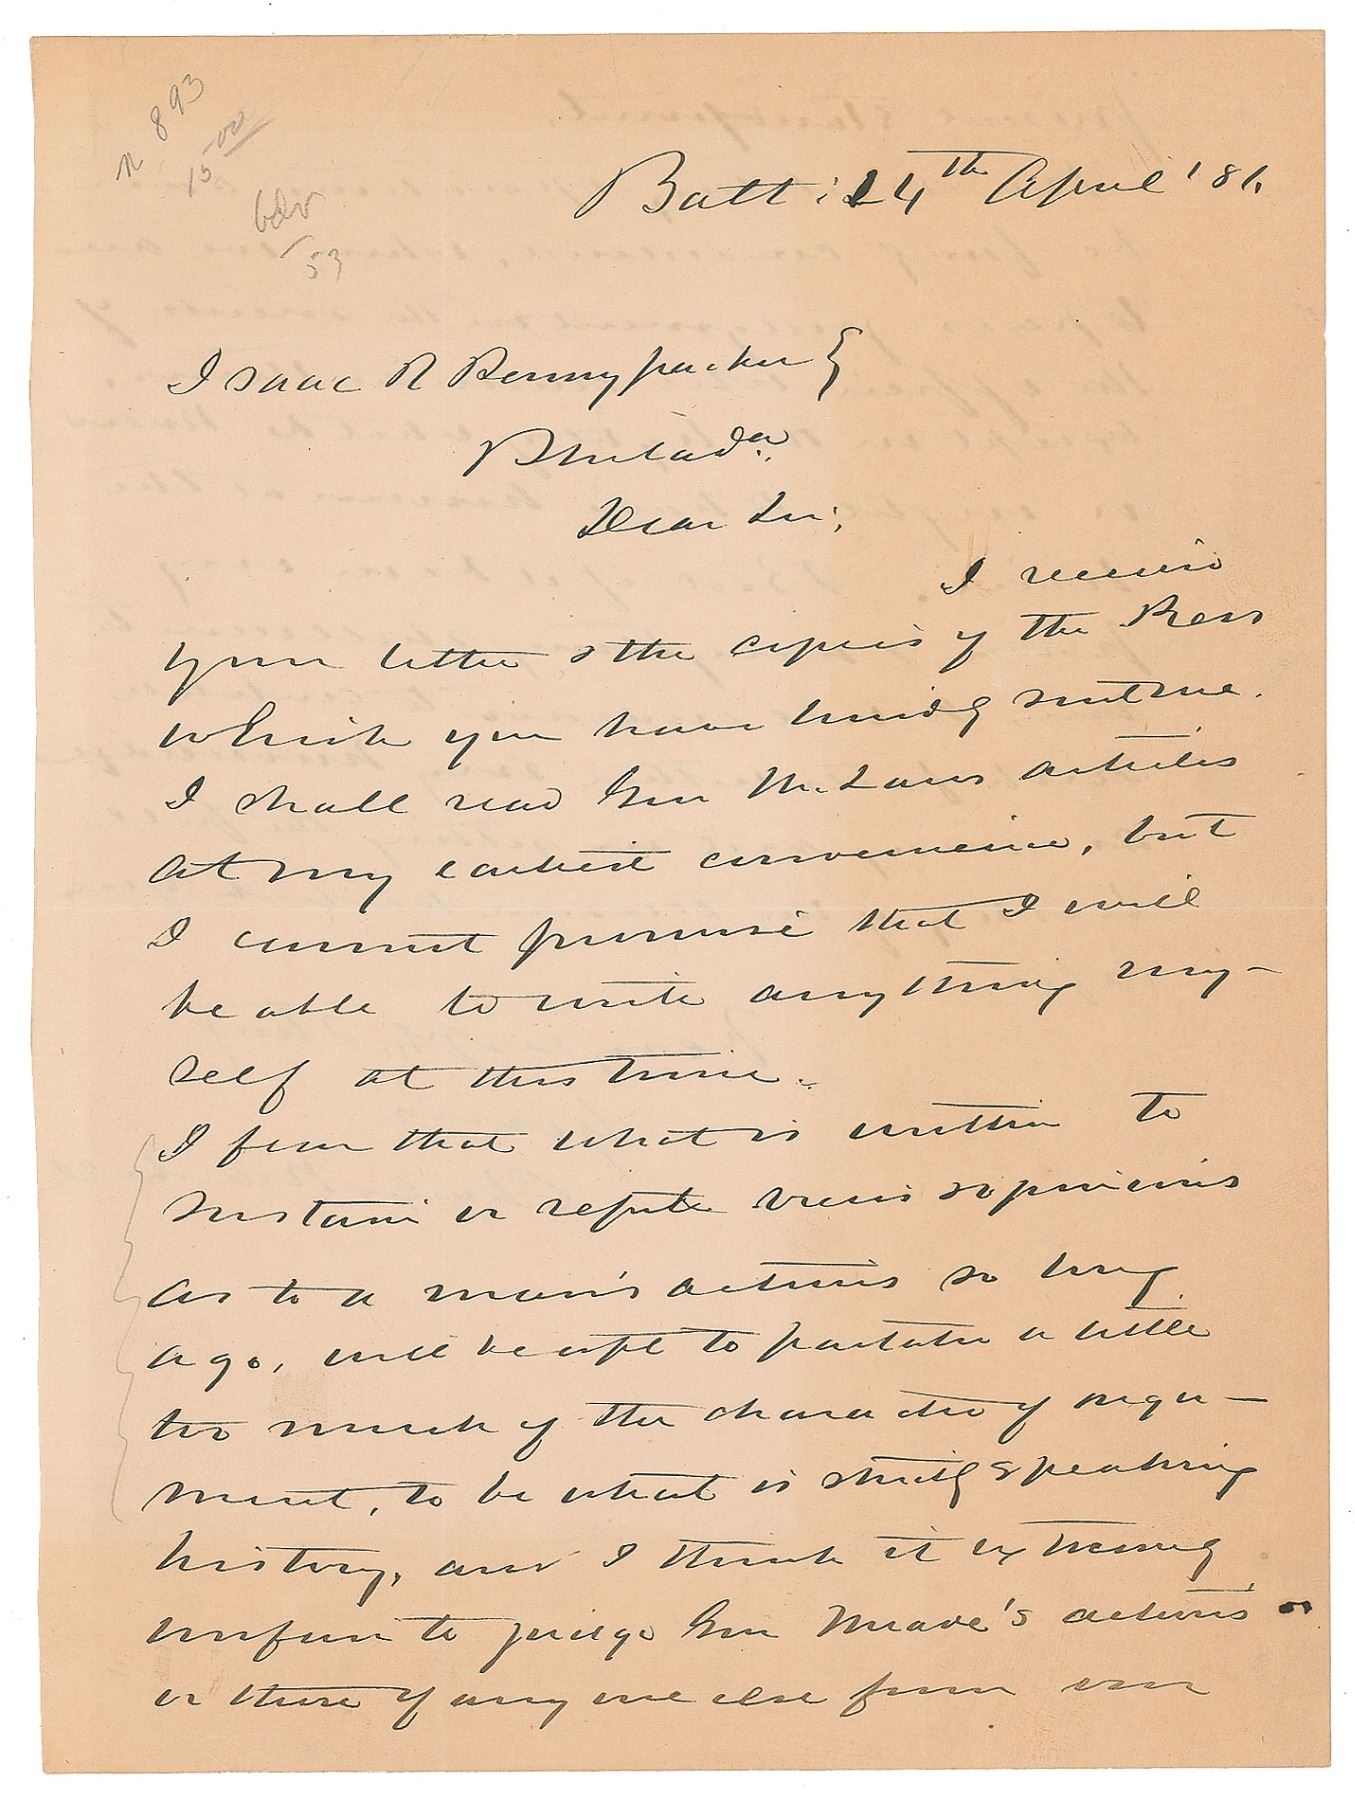 n 893
15 00
53
Balt: 24th April '86.
Isaac R Pennypacker }
Philada.
Dear Sir;
I receive
your letter & the copies of the Press
which you have kindly sent me.
I shall read Gen McLaws articles
at my earliest convenience, but
I cannot promise that I will
be able to write anything my-
self at this time.
I fear that what is written to
sustain or refute views & opinions
as to a man's actions so long
ago, will be apt to partake a little
too much of the character of argu-
ment, to be what is strictly speaking
history, and I think it extremely
unfair to judge Gen Meade's actions
or those of any one else from our